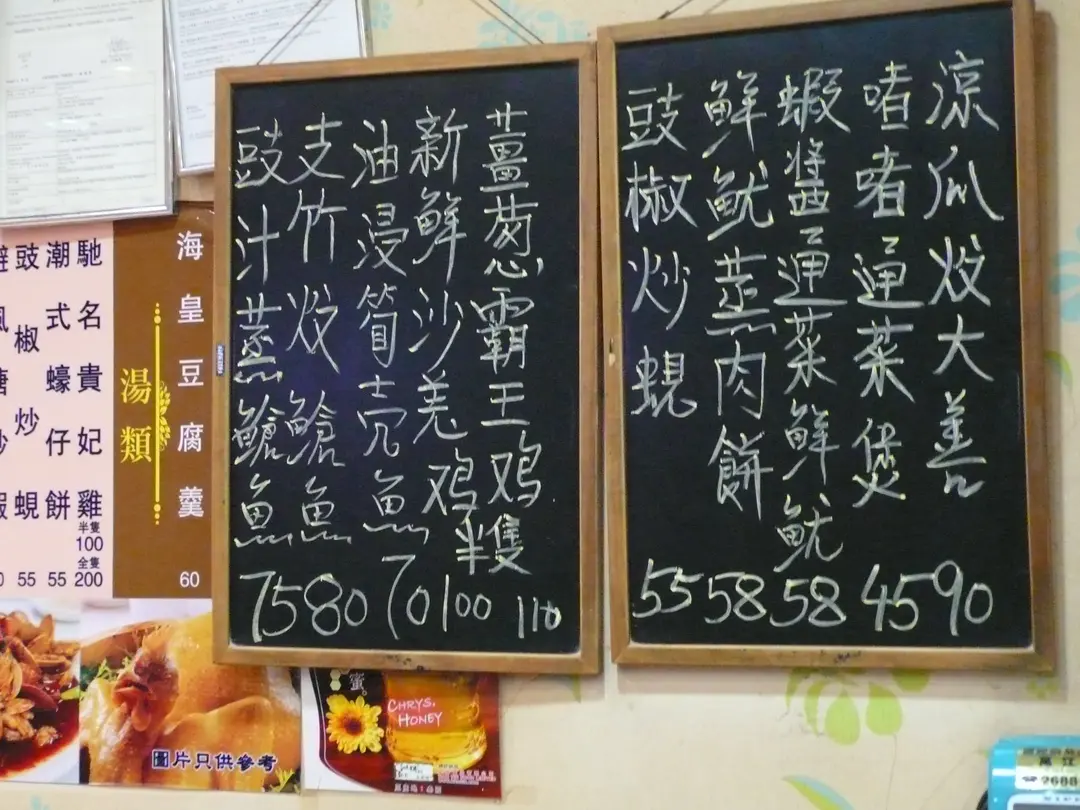 涼瓜炆大善 90
啫啫通菜煲 45
蝦醬通菜鮮魷 58
鮮魷蒸肉餅 58
豉椒炒蜆 55
薑葱霸王鸡 110
新鮮沙羌鸡半隻 100
油浸筍壳魚 70
支竹炆䱽魚 80
豉汁蒸䱽魚 75
海皇豆腐羹 60
湯類
馳名貴妃雞 半隻 100 全隻 200
潮式蠔仔餅 55
豉椒炒蜆 55
圖片只供參考
蜜
CHRYS.
HONEY
2688